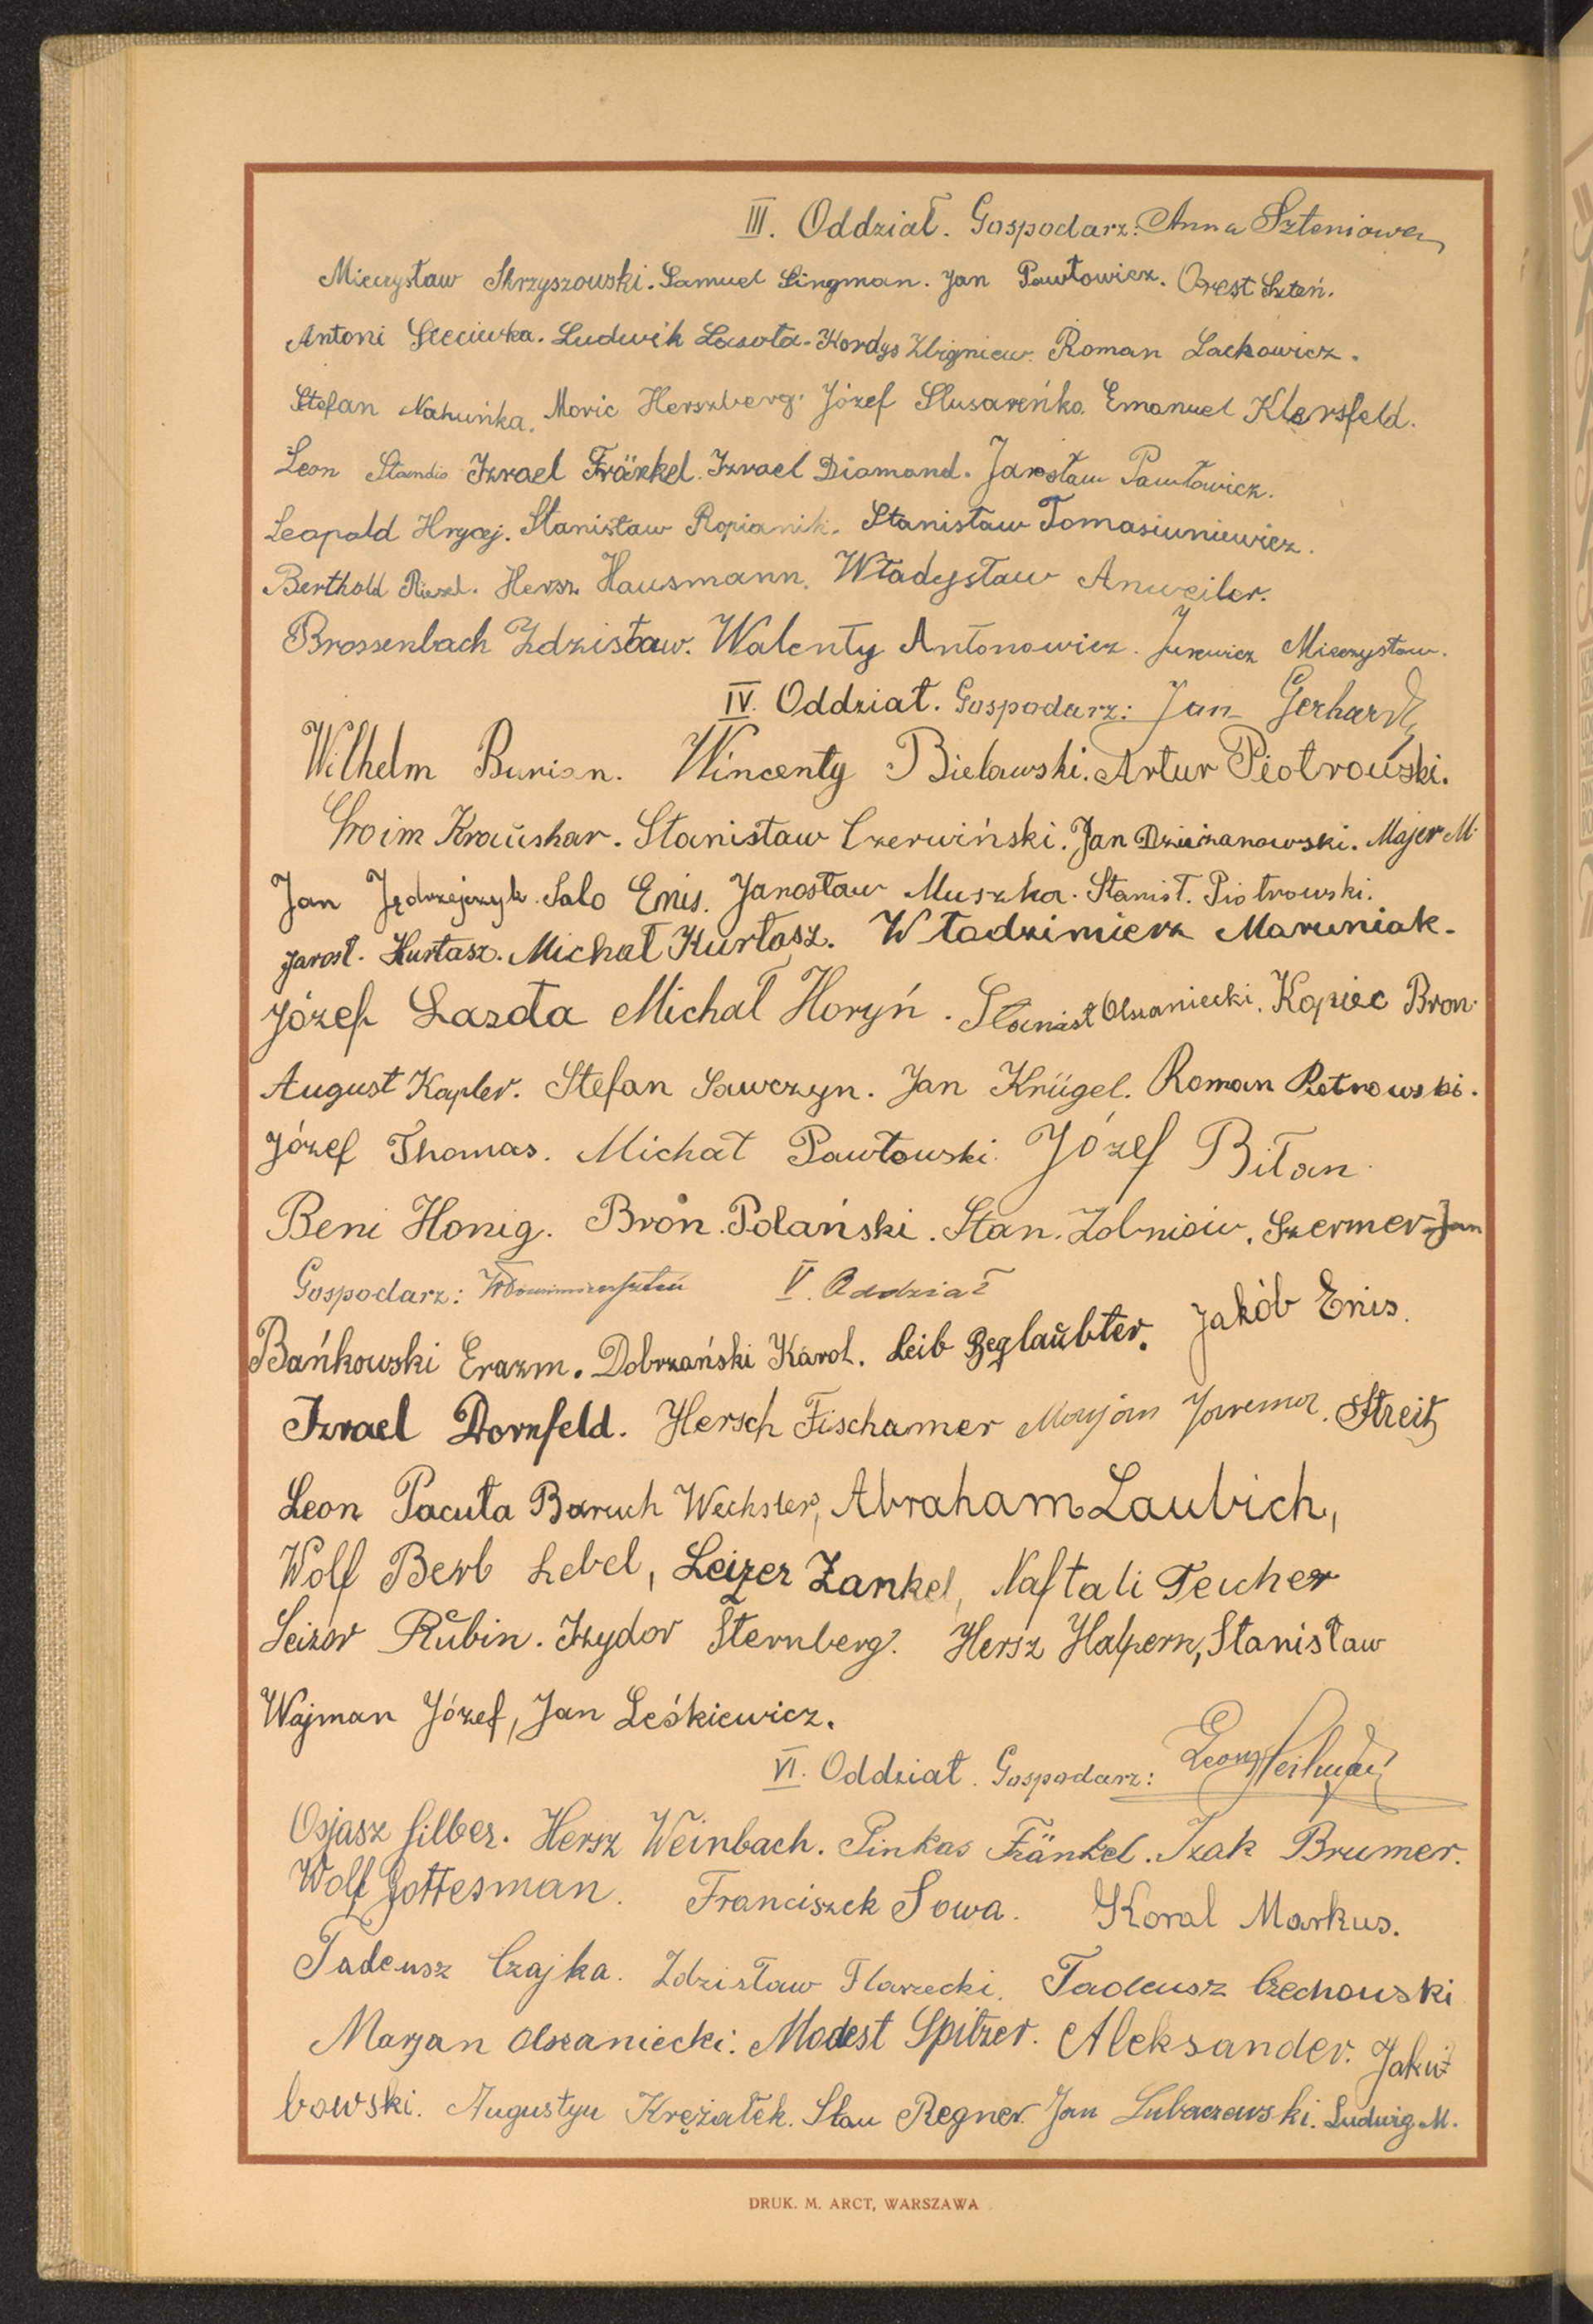 III. Oddział. Gospodarz: Anna Szteniowa
Mieczysław Skrzyszowski. Samuel Singman. Jan Pawłowicz. Orest Szteń.
Antoni Sieciwka. Ludwik Lasota. Kordys Zbigniew. Roman Lackowicz.
Stefan Nahuńka. Moric Herszberg. Józef Slusareńko. Emanuel Klarsfeld.
Leon Izrael Fränkel. Izrael Diamand. Jarosław Pawłowicz.
Leopold Hrycej. Stanisław Ropianik. Stanisław Tomasiuniewicz.
Berthold Riezel. Hersz Hausmann. Władysław Anweiler.
Brossenbach Zdzisław. Walenty Antonowicz. Jurewicz Mieczysław.
IV. Oddział. Gospodarz: Jan Gerhardt
Wilhelm Burian. Wincenty Bielawski. Artur Piotrowski.
Chaim Kraushar. Stanisław Czerwiński. Jan Dzieżanowski. Majer M.
Jan Jędrzejczyk. Salo Enis. Jarosław Muszka. Stanisł. Piotrowski.
Jarosł. Kurtasz. Michał Kurtasz. Władzimierz Maruniak.
Józef Lasota Michał Horyń. Stanisł Olszaniecki. Kopiec Bron.
August Kapler. Stefan Sawczyn. Jan Krügel. Roman Piotrowski.
Józef Thomas. Michał Pawłowski. Józef Biłan.
Beni Honig. Bron. Polański. Stan. Żołniów. Szermer Jan
Gospodarz: V. Oddział
Bańkowski Erazm. Dobrzański Karol. Leib Beglaubter. Jakób Enis.
Izrael Dornfeld. Hersch Fischamer Marjan Jarema. Streit
Leon Pacuła Baruch Wechsler, Abraham Laubich,
Wolf Berb Lebel, Leizer Zankel, Naftali Teicher
Leizor Rubin. Izydor Sternberg. Hersz Halpern, Stanisław
Wajman Józef, Jan Leśkiewicz.
VI. Oddział. Gospodarz: Leon
Osjasz Silber. Hersz Weinbach. Pinkas Fränkel. Izak Brumer.
Wolf Gottesman. Franciszek Sowa. Koral Markus.
Tadeusz Czajka. Zdzisław Tlarzecki. Tadeusz Czechowski
Marjan Olszaniecki. Modest Spitzer. Aleksander. Jaku
bowski. Augustyn Krężałek. Stan Regner. Jan Lubaczewski. Ludwig M.
DRUK. M. ARCT, WARSZAWA